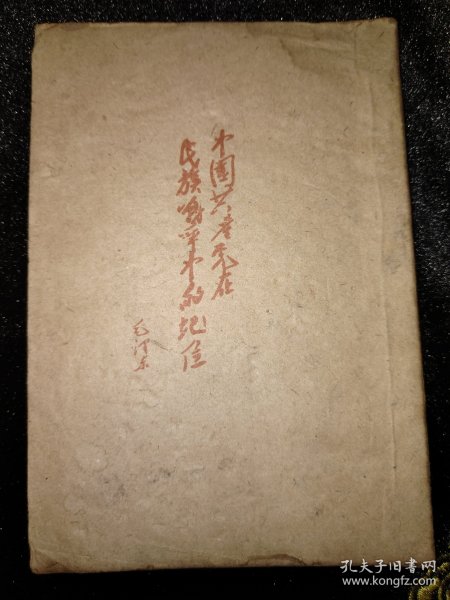 中国共产党在
民族战争中的地位
毛泽东
孔夫子旧书网
www.kongfz.com